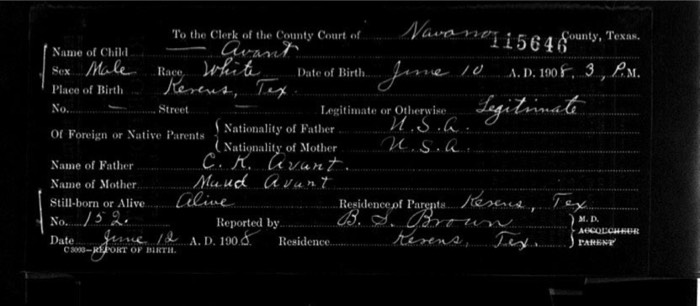 To the Clerk of the County Court of Navarro County, Texas.
115646
Name of Child — Avant
Sex Male Race White Date of Birth June 10 A. D. 1908. 3, P.M.
Place of Birth Kerens, Tex.
No. — Street — Legitimate or Otherwise Legitimate
Of Foreign or Native Parents { Nationality of Father U.S.A.
Nationality of Mother U.S.A.
Name of Father C. K. Avant.
Name of Mother Maud Avant
Still-born or Alive Alive Residence of Parents Kerens, Tex
No. 152. Reported by B. S. Brown } M. D.
ACCOUCHEUR
Date June 12 A. D. 1908 Residence Kerens, Tex. PARENT
C 3093—REPORT OF BIRTH.